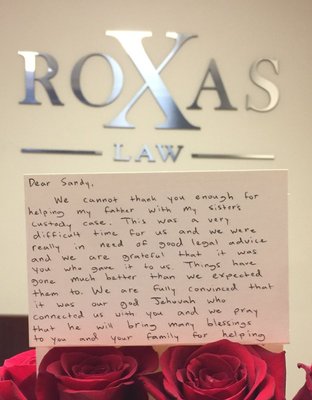 ROXAS
LAW
Dear Sandy,
We cannot thank you enough for
helping my father with my sister's
custody case. This was a very
difficult time for us and we were
really in need of good legal advice
and we are grateful that it was
you who gave it to us. Things have
gone much better than we expected
them to. We are fully convinced that
it was our god Jehovah who
connected us with you and we pray
that he will bring many blessings
to you and your family for helping